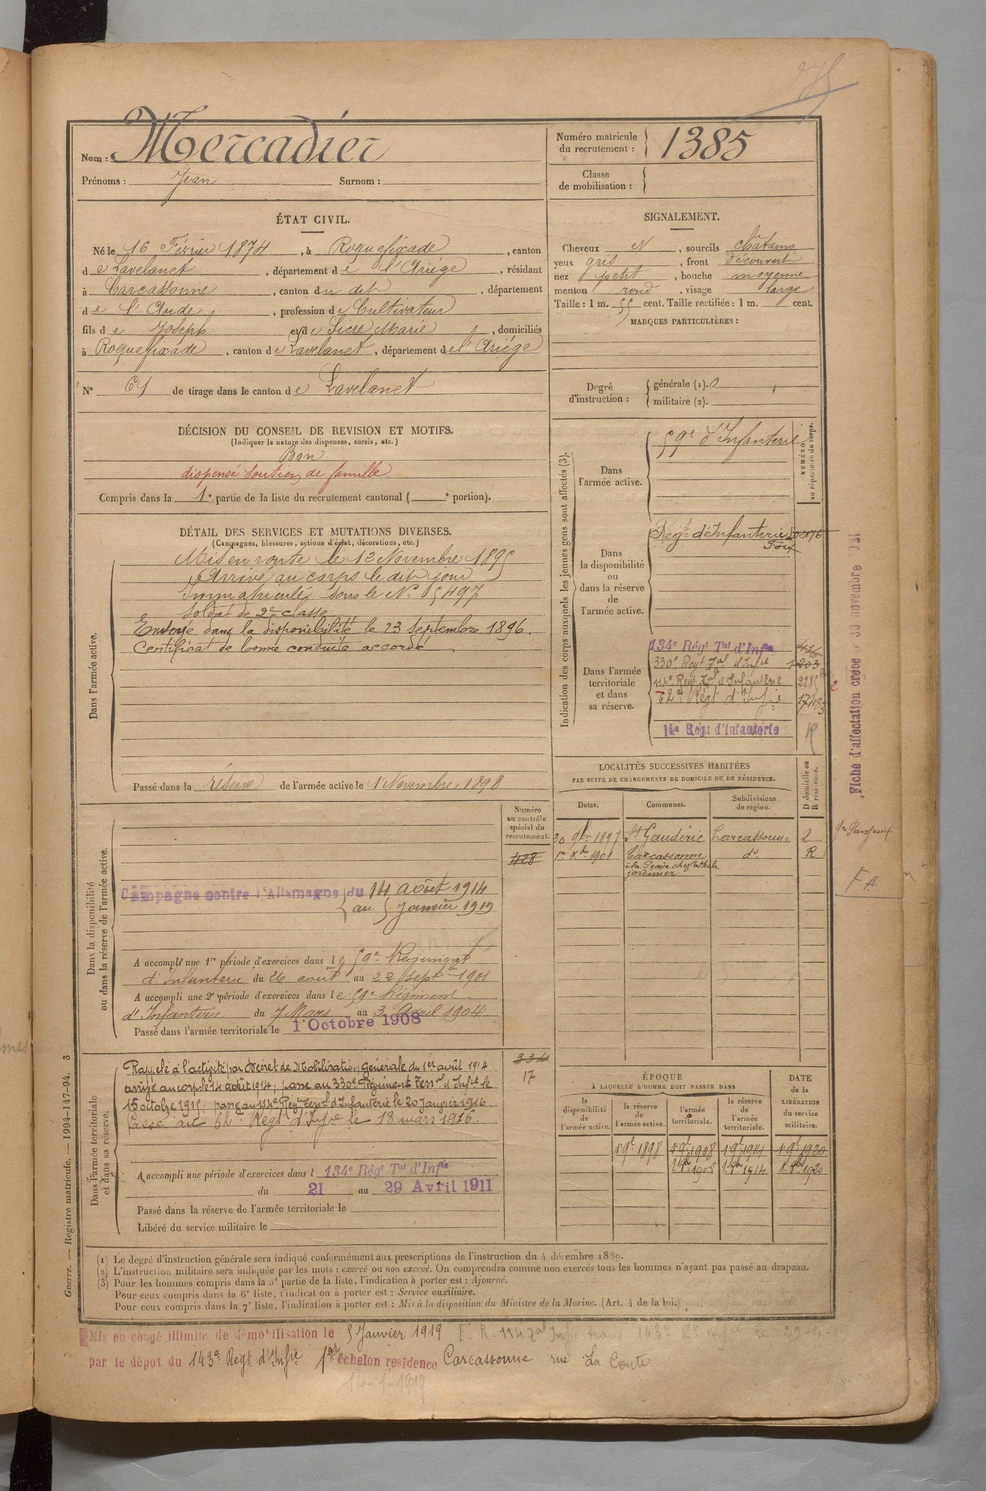 Nom : Mercadier
Prénoms : Jean Surnom :
Numéro matricule du recrutement : 1385
Classe de mobilisation :
ÉTAT CIVIL.
Né le 16 Février 1874, à Roquefixade, canton
de Lavelanet, département de l'Ariége, résidant
à Carcassonne, canton du dit, département
de l'Aude, profession de Cultivateur
fils de Joseph et de Sicre Marie, domiciliés
à Roquefixade, canton de Lavelanet, département de l'Ariége
N° de tirage dans le canton de Lavelanet
SIGNALEMENT.
Cheveux N, sourcils châtains
yeux gris, front découvert
nez petit, bouche moyenne
menton rond, visage large
Taille : 1 m. 55 cent. Taille rectifiée : 1 m. cent.
MARQUES PARTICULIÈRES :
Degré d'instruction : générale (1). 0
militaire (2).
DÉCISION DU CONSEIL DE REVISION ET MOTIFS.
(Indiquer la nature des dispenses, sursis, etc.)
Bon
dispensé soutien de famille
Compris dans la 1e partie de la liste du recrutement cantonal ( e portion).
DÉTAIL DES SERVICES ET MUTATIONS DIVERSES.
(Campagnes, blessures, actions d'éclat, décorations, etc.)
Dans l'armée active.
Mis en route le 12 Novembre 1895
Arrivé au corps le dit jour
Immatriculé sous le N° 5497
Soldat de 2e classe
Envoyé dans la disponibilité le 23 Septembre 1896.
Certificat de bonne conduite accordé
Passé dans la réserve de l'armée active le 1 Novembre 1898
Indication des corps auxquels les jeunes gens sont affectés (3).
NUMÉRO au répertoire du corps.
Dans l'armée active.
59e d'Infanterie
Dans la disponibilité ou dans la réserve de l'armée active.
Régt d'Infanterie
Foix
Dans l'armée territoriale et dans sa réserve.
134e Régt Tal d'Infie
330e Régt Tal d'Infie
114e Régt Tal d'Infanterie
62e Régt d'Infie
Régt d'Infanterie
Fiche d'affectation créée le 30 novembre
LOCALITÉS SUCCESSIVES HABITÉES
PAR SUITE DE CHANGEMENTS DE DOMICILE OU DE RÉSIDENCE.
Dates. Communes. Subdivisions de région. D domicile ou R résidence.
30 9bre 1897 St Gaudéric Carcassonne
1er Xbre 1901 Carcassonne do R
jardinier
F A
Numéro au contrôle spécial du recrutement.
428
Dans la disponibilité ou dans la réserve de l'armée active.
Campagne contre l'Allemagne du 14 août 1914
au 5 Janvier 1919
A accompli une 1re période d'exercices dans le 59e Régiment
d'Infanterie du 26 août au 22 septbre 1901
A accompli une 2e période d'exercices dans le 59e Régiment
d'Infanterie du 7 Mars au 3 Avril 1904
Passé dans l'armée territoriale le 1 Octobre 1908
334
17
Dans l'armée territoriale et dans sa réserve.
Rappelé à l'activité par Décret de Mobilisation Générale du 1er août 1914
arrivé au corps le 14 août 1914; passé au 330e Régiment Terral d'Infie le
15 octobre 1915; passé au 114e Régt Terral d'Infanterie le 20 Janvier 1916
Passé au 62e Régt d'Infie le 18 mars 1916
A accompli une période d'exercices dans l 134e Régt Tal d'Infie
du 21 au 29 Avril 1911
Passé dans la réserve de l'armée territoriale le
Libéré du service militaire le
ÉPOQUE
À LAQUELLE L'HOMME DOIT PASSER DANS
DATE de la LIBÉRATION du service militaire.
la disponibilité de l'armée active. la réserve de l'armée active. l'armée territoriale. la réserve de l'armée territoriale.
1 9bre 1898 1 9bre 1908 1 9bre 1914 1 9bre 1920
1 8bre 1908 1 8bre 1914 1 8bre 1920
(1) Le degré d'instruction générale sera indiqué conformément aux prescriptions de l'instruction du 4 décembre 1889.
(2) L'instruction militaire sera indiquée par les mots : exercé ou non exercé. On comprendra comme non exercés tous les hommes n'ayant pas passé au drapeau.
(3) Pour les hommes compris dans la 5e partie de la liste, l'indication à porter est : Ajourné.
Pour ceux compris dans la 6e liste, l'indication à porter est : Service auxiliaire.
Pour ceux compris dans la 7e liste, l'indication à porter est : Mis à la disposition du Ministre de la Marine. (Art. 4 de la loi.)
Guerre. — Registre matricule. — 1994-147-94. 3
Mis en congé illimité de démobilisation le 5 Janvier 1919
par le dépôt du 143e Régt d'Infie 1er échelon résidence Carcassonne rue La Conte
14-1-1919